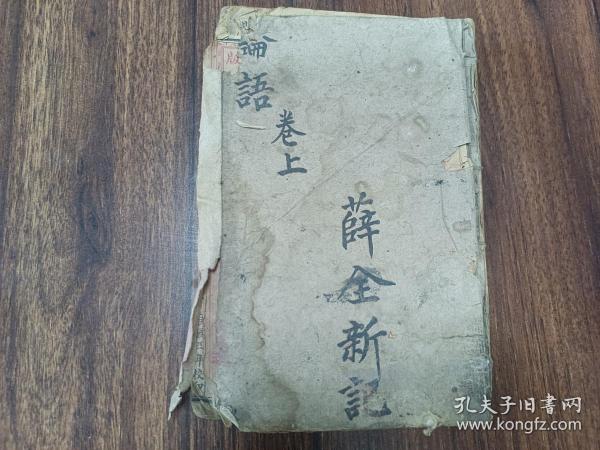 論語
卷上
薛全新記
孔夫子旧書网
www.kongfz.com